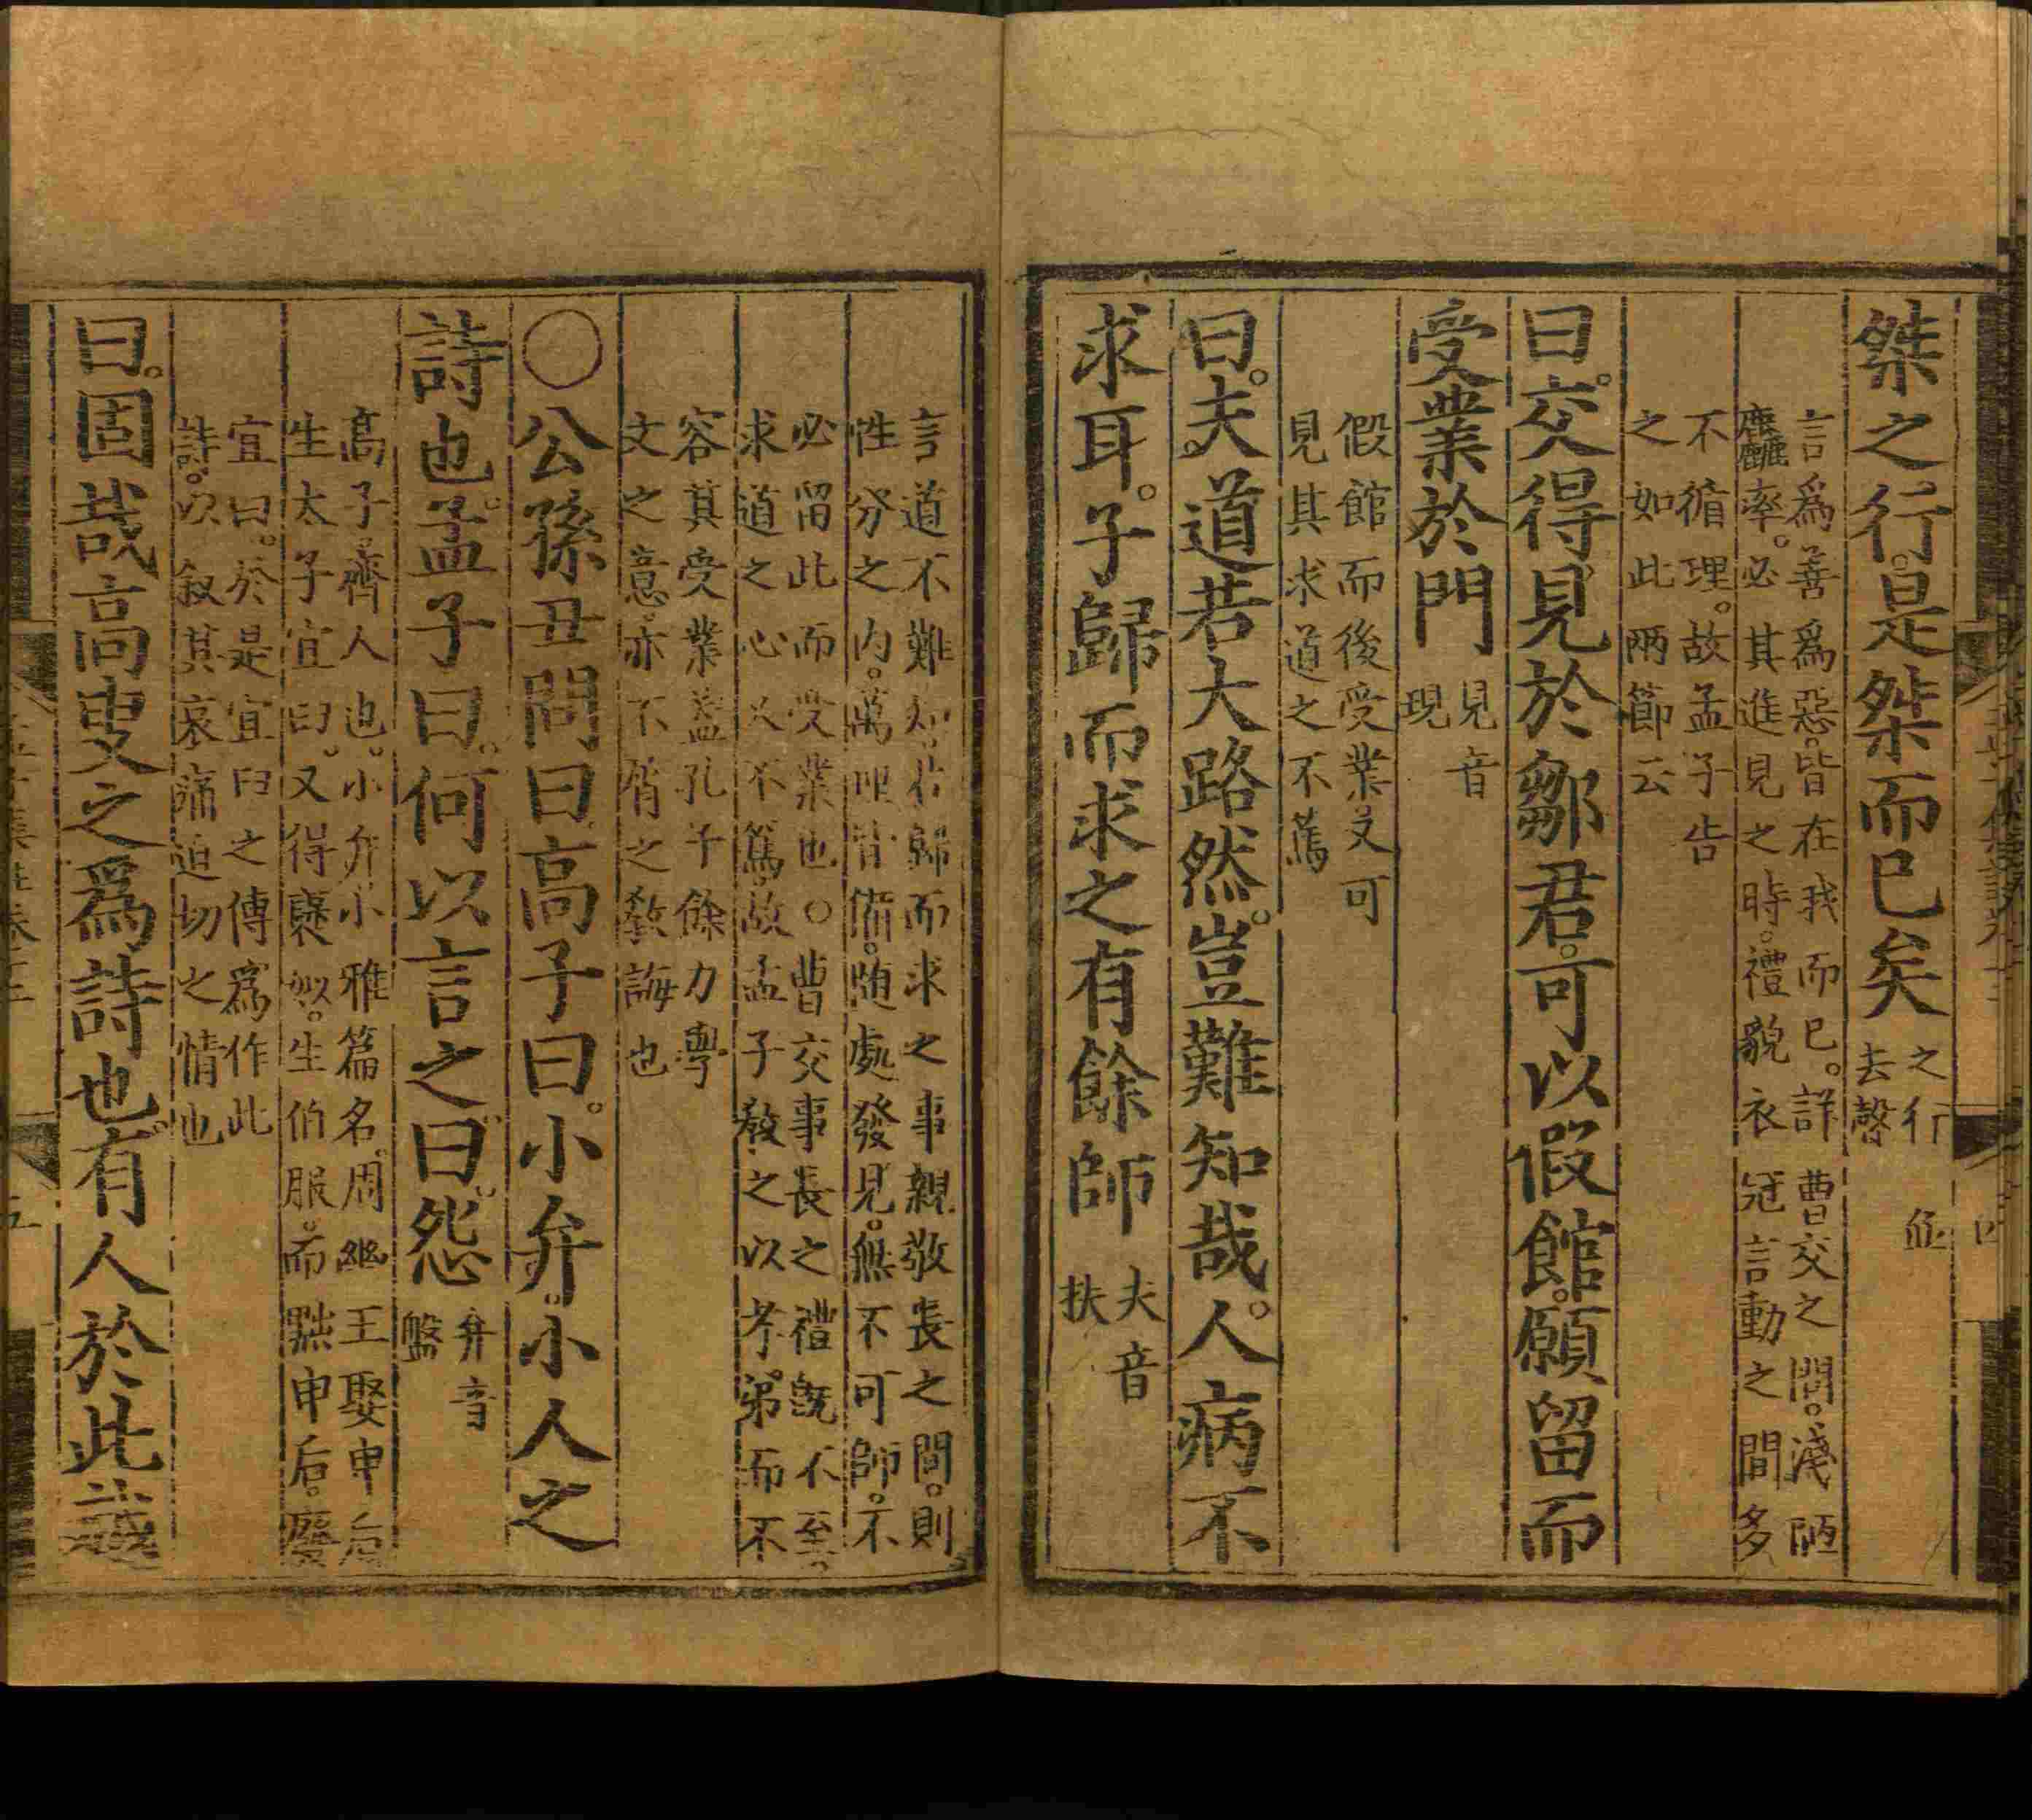 桀之行。是桀而已矣
之行並
去聲
言爲善爲惡。皆在我而已。詳曹交之問。淺陋
麤率。必其進見之時。禮貌衣冠言動之間多
不循理。故孟子告
之如此兩節云
曰。交得見於鄒君。可以假館。願留而
受業於門
見音
現
假館而後受業。又可
見其求道之不篤
曰。夫道若大路然。豈難知哉。人病不
求耳。子歸而求之有餘師
夫音
扶
言道不難知。若歸而求之事親敬長之間。則
性分之内。萬理皆備。隨處發見。無不可師。不
必留此而受業也。○曹交事長之禮旣不至。
求道之心又不篤。故孟子敎之以孝弟而不
容其受業。蓋孔子餘力學
文之意。亦不屑之敎誨也
○公孫丑問曰。高子曰。小弁。小人之
詩也。孟子曰。何以言之。曰。怨
弁音
盤
高子。齊人也。小弁小雅篇名。周幽王娶申后
生太子宜臼。又得襃姒。生伯服。而黜申后。廢
宜臼。於是宜臼之傅爲作此
詩。以敘其哀痛迫切之情也
曰。固哉高叟之爲詩也。有人於此